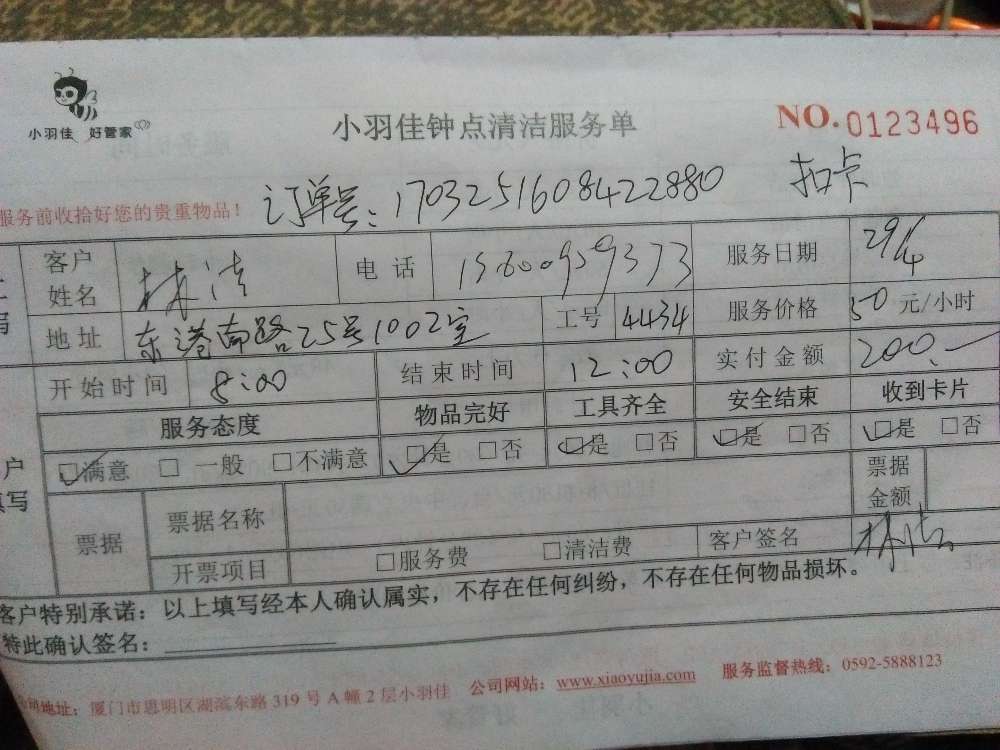 小羽佳 好管家
小羽佳钟点清洁服务单
NO.0123496
服务前收拾好您的贵重物品！
订单号：1703251608422880 扣卡
客户姓名 林洁 电话 服务日期 29/4
地址 东港南路25号1002室 工号 4434 服务价格 50元/小时
开始时间 8:00 结束时间 12:00 实付金额 200.—
服务态度 物品完好 工具齐全 安全结束 收到卡片
☑满意 □一般 □不满意 ☑是 □否 ☑是 □否 ☑是 □否 ☑是 □否
票据 票据名称 票据金额
开票项目 □服务费 □清洁费 客户签名 林洁
客户特别承诺：以上填写经本人确认属实，不存在任何纠纷，不存在任何物品损坏。
特此确认签名：
地址：厦门市思明区湖滨东路319号A幢2层小羽佳 公司网站：www.xiaoyujia.com 服务监督热线：0592-5888123